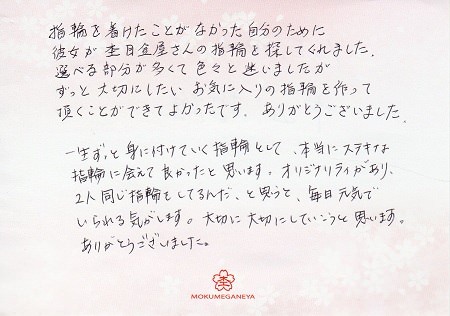 指輪を着けたことがなかった自分のために
彼女が杢目金屋さんの指輪を探してくれました。
選べる部分が多くて色々と迷いましたが
ずっと大切にしたいお気に入りの指輪を作って
頂くことができてよかったです。ありがとうございました。
一生ずっと身に付けていく指輪として、本当にステキな
指輪に会えて良かったと思います。オリジナリティがあり、
2人同じ指輪をしてるんだ、と思うと、毎日元気で
いられる気がします。大切に大切にしていこうと思います。
ありがとうございました。
MOKUMEGANEYA